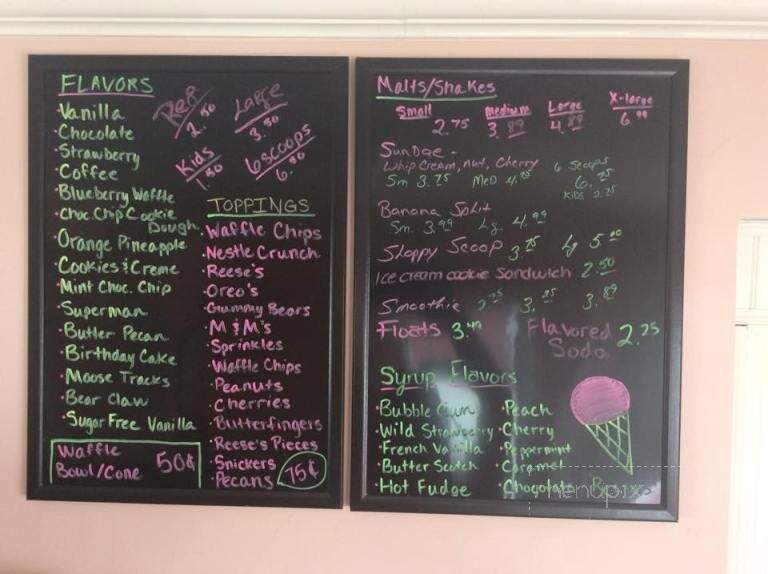 FLAVORS
Reg. 2.50
Large 3.50
Kids 1.50
6 scoops 6.50
Vanilla
Chocolate
Strawberry
Coffee
Blueberry Waffle
Choc. Chip Cookie Dough
Orange Pineapple
Cookies & Creme
Mint Choc. Chip
Superman
Butter Pecan
Birthday Cake
Moose Tracks
Bear Claw
Sugar Free Vanilla
Waffle
Bowl/Cone 50¢
TOPPINGS
Waffle Chips
Nestle Crunch
Reese's
Oreo's
Gummy Bears
M & M's
Sprinkles
Waffle Chips
Peanuts
Cherries
Butterfingers
Reese's Pieces
Snickers
Pecans 75¢
Malts/Shakes
Small Medium Large X-large
2.75 3.89 4.89 6.99
Sundae -
Whip Cream, nut, Cherry 6 Scoops
Sm 3.75 Med 4.75 6.75
Kids 2.75
Banana Split
Sm. 3.99 Lg. 4.99
Sloppy Scoop 3.75 Lg 5.00
Ice cream cookie Sandwich 2.50
Smoothie 2.75 3.25 3.89
Floats 3.49 Flavored Soda 2.75
Syrup Flavors
Bubble Gum
Wild Strawberry
French Vanilla
Butter Scotch
Hot Fudge
Peach
Cherry
Peppermint
Caramel
Chocolate
menupix